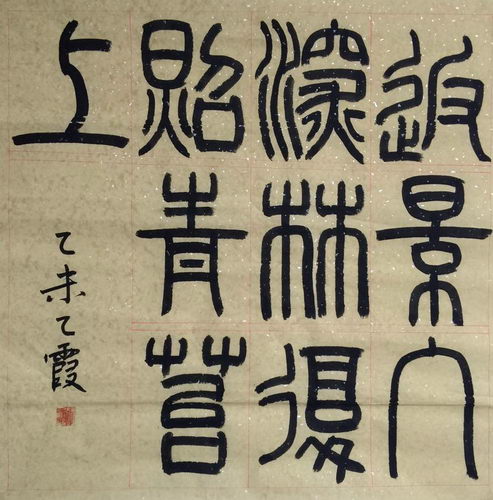 返景入
深林復
照青苔
上
乙未乙霞